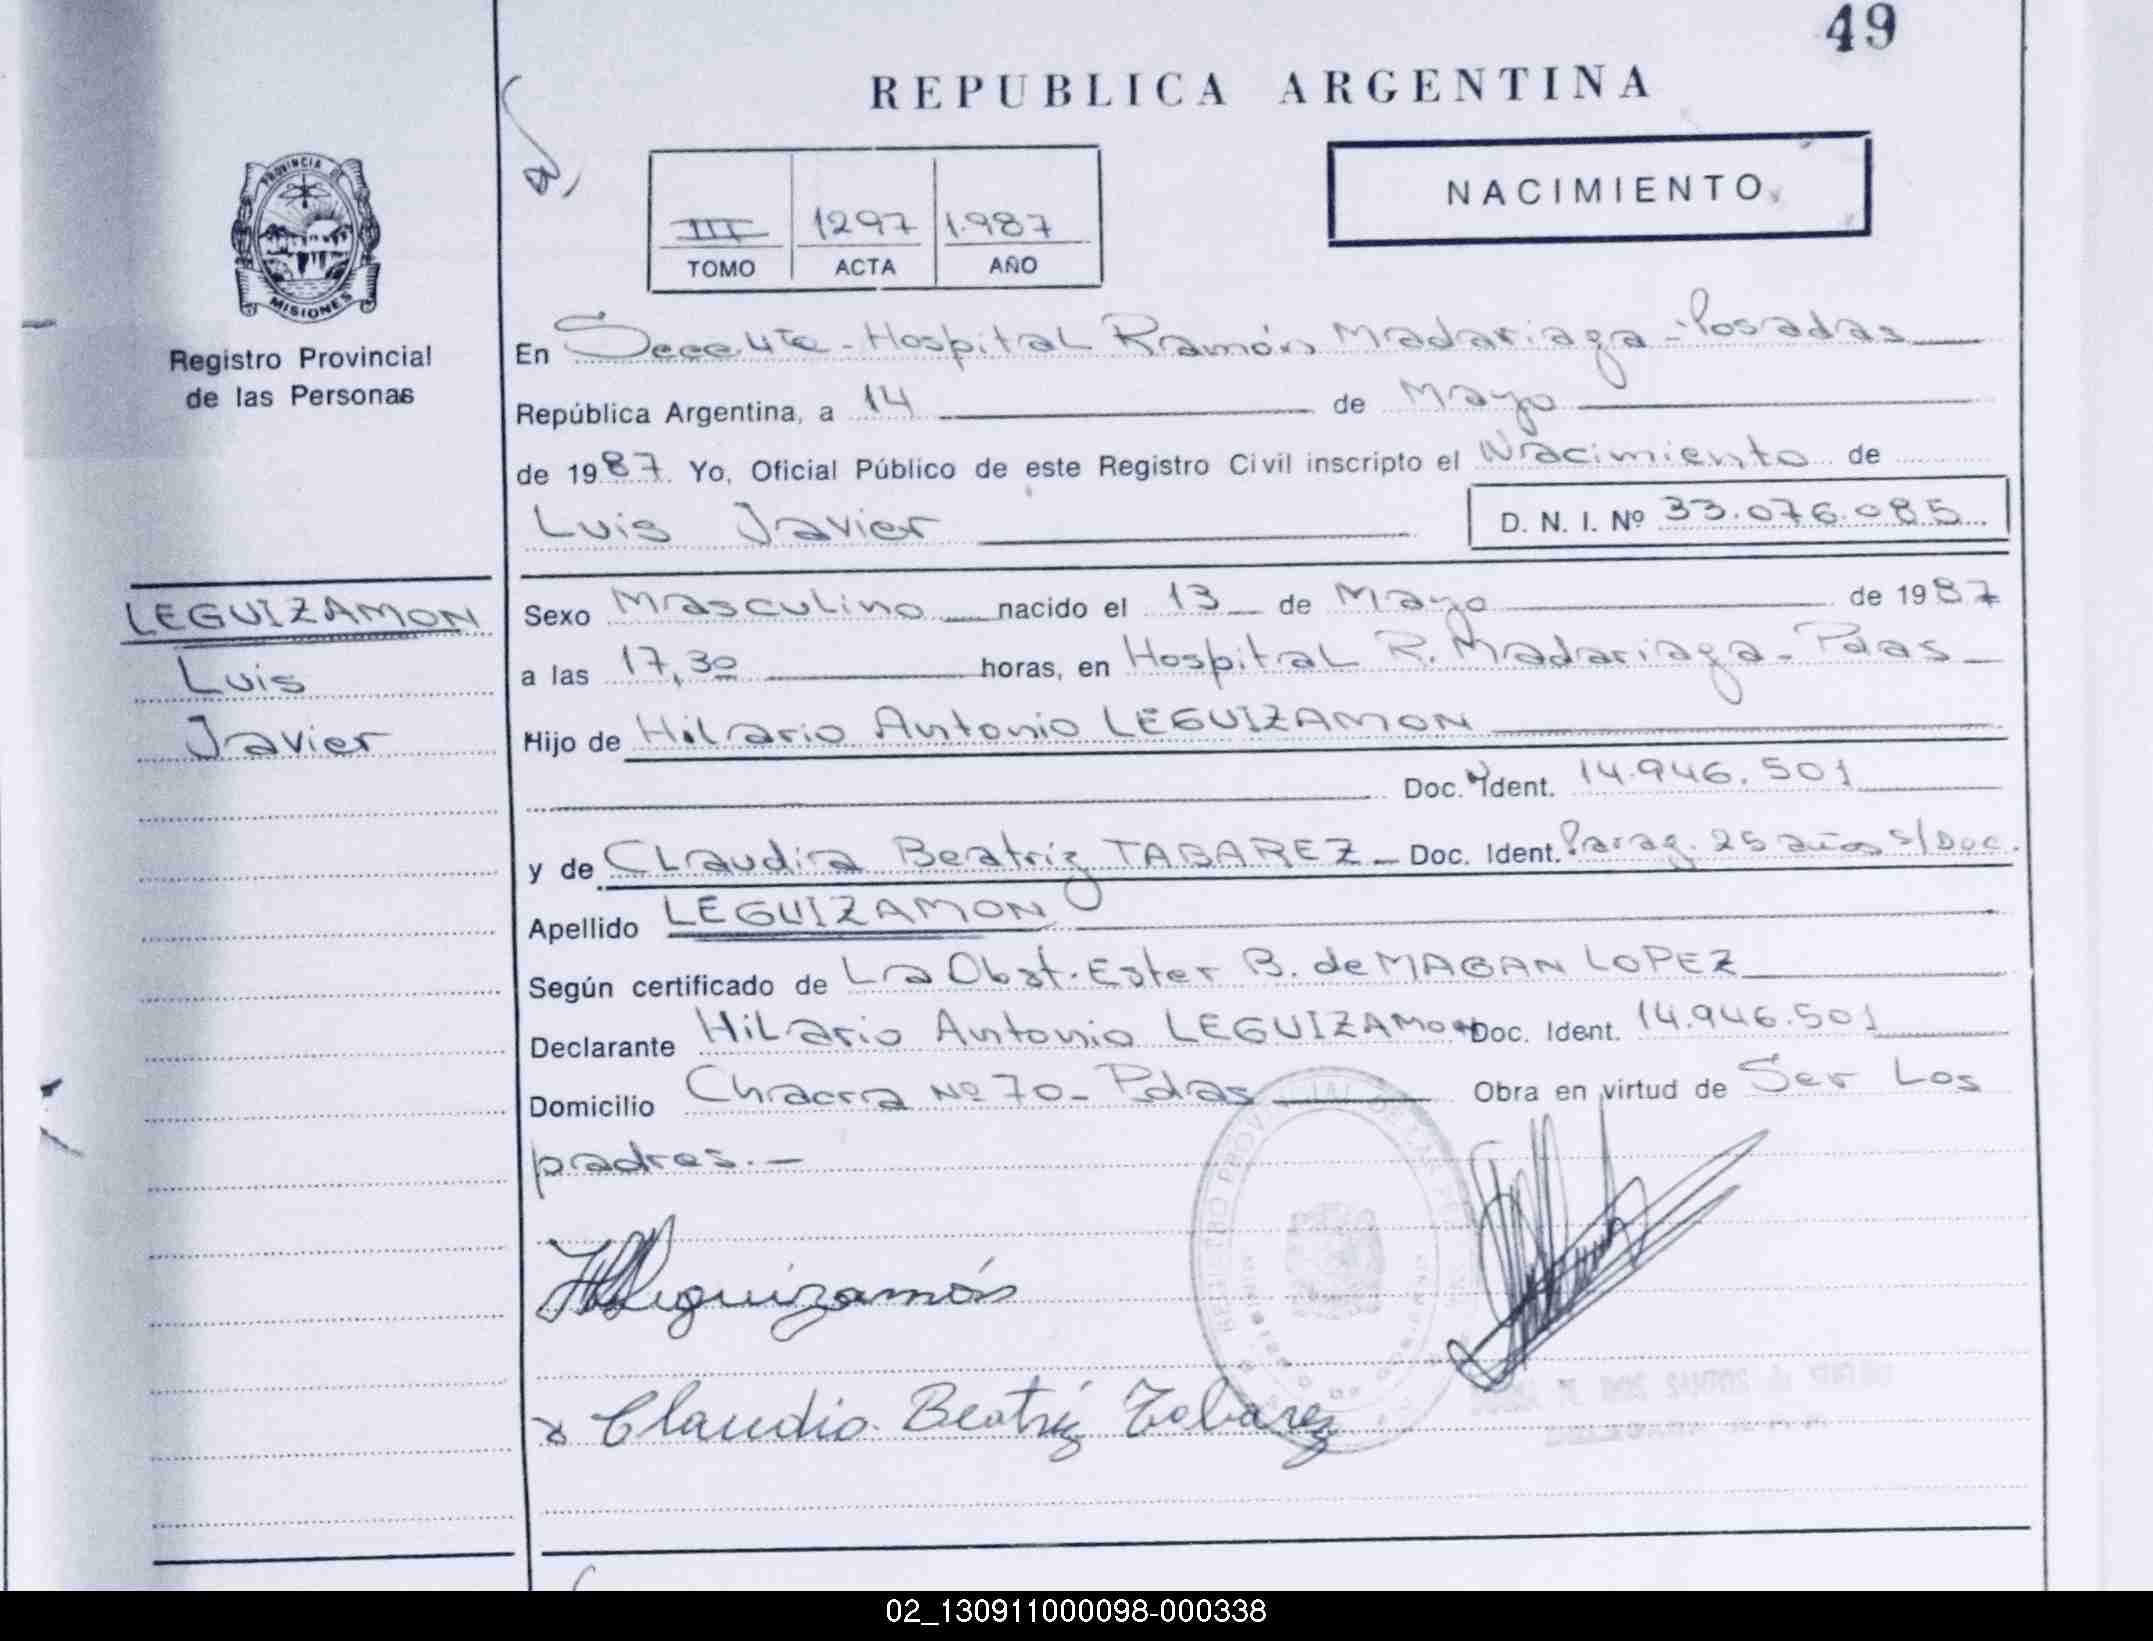 49
REPUBLICA ARGENTINA
NACIMIENTO
III 1297 1.987
TOMO ACTA AÑO
PROVINCIA DE
MISIONES
Registro Provincial
de las Personas
En - Hospital Ramón Madariaga - Posadas
República Argentina, a 14 de Mayo
de 1987. Yo, Oficial Público de este Registro Civil inscripto el Nacimiento de
Luis Javier D. N. I. Nº 33.076.085
LEGUIZAMON
Luis
Javier
Sexo Masculino nacido el 13 de Mayo de 1987
a las 17,30 horas, en Hospital R. Madariaga - Pdas
Hijo de Hilario Antonio LEGUIZAMON
Doc. Ident. 14.946.501
y de Claudia Beatriz TABAREZ - Doc. Ident. Parag. 25 años s/Doc.
Apellido LEGUIZAMON
Según certificado de La Obst. Ester B. de MAGAN LOPEZ
Declarante Hilario Antonio LEGUIZAMON Doc. Ident. 14.946.501
Domicilio Chacra Nº 70 - Pdas Obra en virtud de Ser Los
padres.-
Leguizamón
Claudia Beatriz Tabarez
02_130911000098-000338